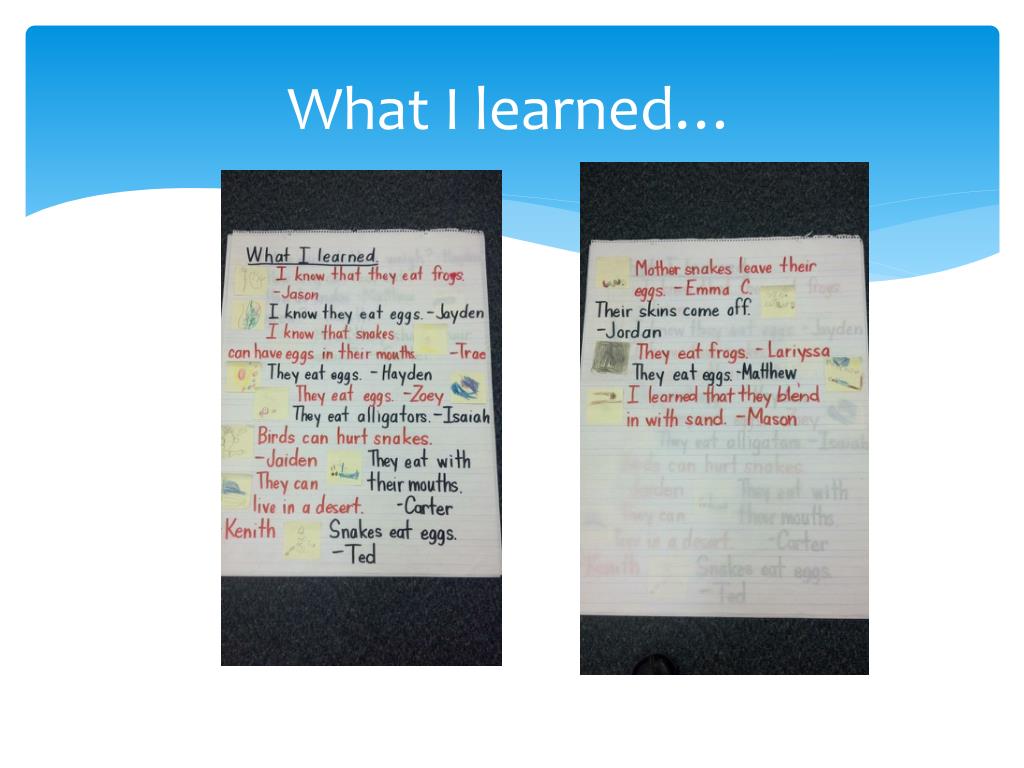 What I learned...
What I learned.
I know that they eat frogs.
-Jason
I know they eat eggs. -Jayden
I know that snakes
can have eggs in their mouths. -Trae
They eat eggs. - Hayden
They eat eggs. -Zoey
They eat alligators. -Isaiah
Birds can hurt snakes.
-Jaiden
They eat with
their mouths.
-Carter
They can
live in a desert.
Kenith
Snakes eat eggs.
-Ted
Mother snakes leave their
eggs. - Emma C.
Their skins come off.
-Jordan
They eat frogs. - Lariyssa
They eat eggs. -Matthew
I learned that they blend
in with sand. -Mason